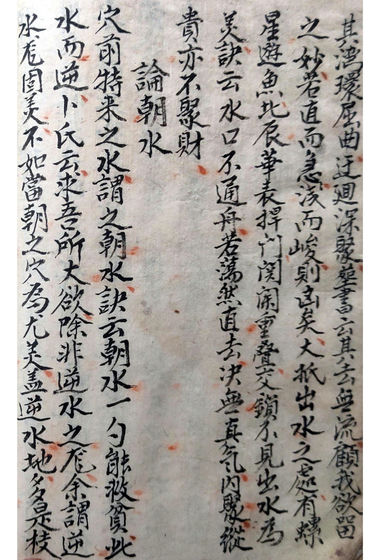 其灣環屈曲迂迴深聚塟書云其去無流顧我欲留
之妙若直而急淺而峻則凶矣大抵出水之處有螺
星遊魚北辰華表捍門関闌重疊交鎖不見出水為
美訣云水口不通舟若蕩然直去决無真氣內聚縱
貴亦不聚財
論朝水
穴前特来之水謂之朝水訣云朝水一勺能救貧此
水而逆卜氏云求吾所大欲除非逆水之龙余謂逆
水龙固美不如當朝之穴為尤美盖逆水地多是枝